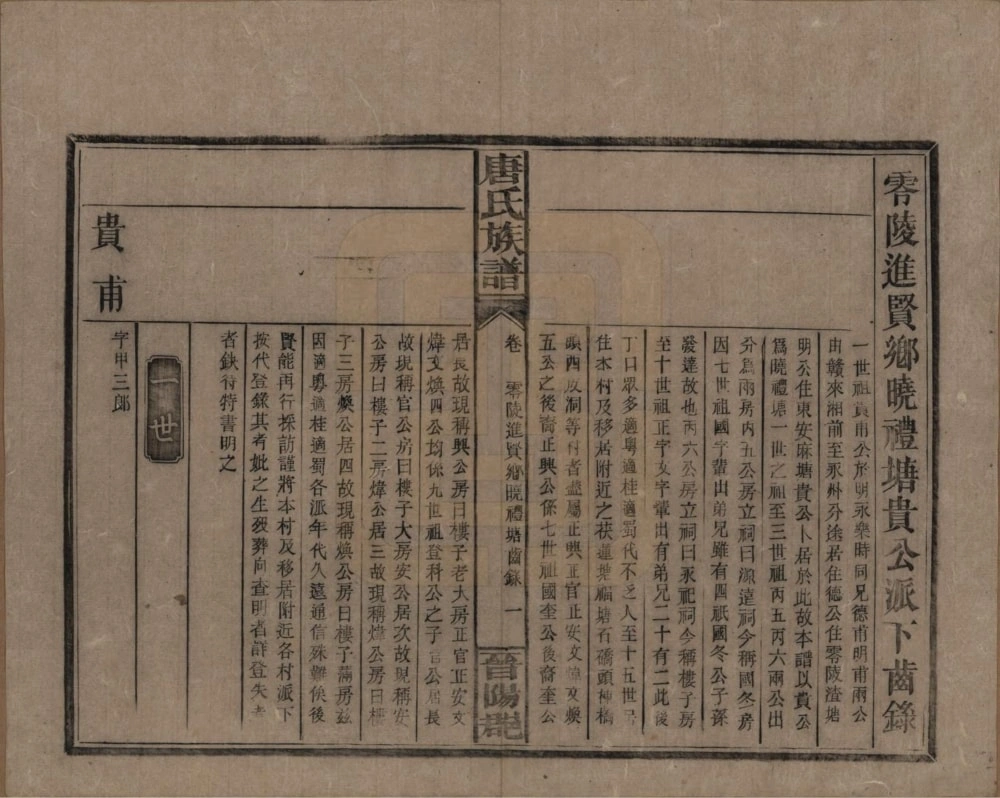 零陵進賢鄉曉禮塘貴公派下齒錄
一世祖貴甫公於明永樂時同兄德甫明甫兩公
由贛來湘前至永州分途若住德公住零陵渣塘
明公住東安麻塘貴公卜居於此故本譜以貴公
爲曉禮塘一世之祖至三世祖丙五丙六兩公出
分爲兩房丙五公房立祠曰源遠祠今稱國冬房
因七世祖國字輩出弟兄雖有四祇國冬公子孫
發達故也丙六公房立祠曰永祀祠今稱樓子房
至十世祖正字文字輩出有弟兄二十有二此後
丁口眾多適粵適桂適蜀代不乏人至十五世呂
住本村及移居附近之茯蓮塘福塘石礄頭
頭四皮洞等村者盡屬正興正官正安文煒文煥
五公之後裔正興公係七世祖國奎公後裔奎公
唐氏族譜
卷
零陵進賢鄉曉禮塘齒錄
一
晉陽邕
居長故現稱興公房曰樓子老大房正官正安文
煒文煥四公均係九世祖登科公之子官公居長
故現稱官公房曰樓子大房安公居次故現稱安
公房曰樓子二房煒公居三故現稱煒公房曰樓
子三房煥公居四故現稱煥公房曰樓子滿房茲
因適粵適桂適蜀各派年代久遠通信殊難俟後
賢能再行採訪謹將本村及移居附近各村派下
按代登錄其考妣之生歿葬向查明者詳登失考
者缺待特書明之
一世
貴甫
字甲三郎